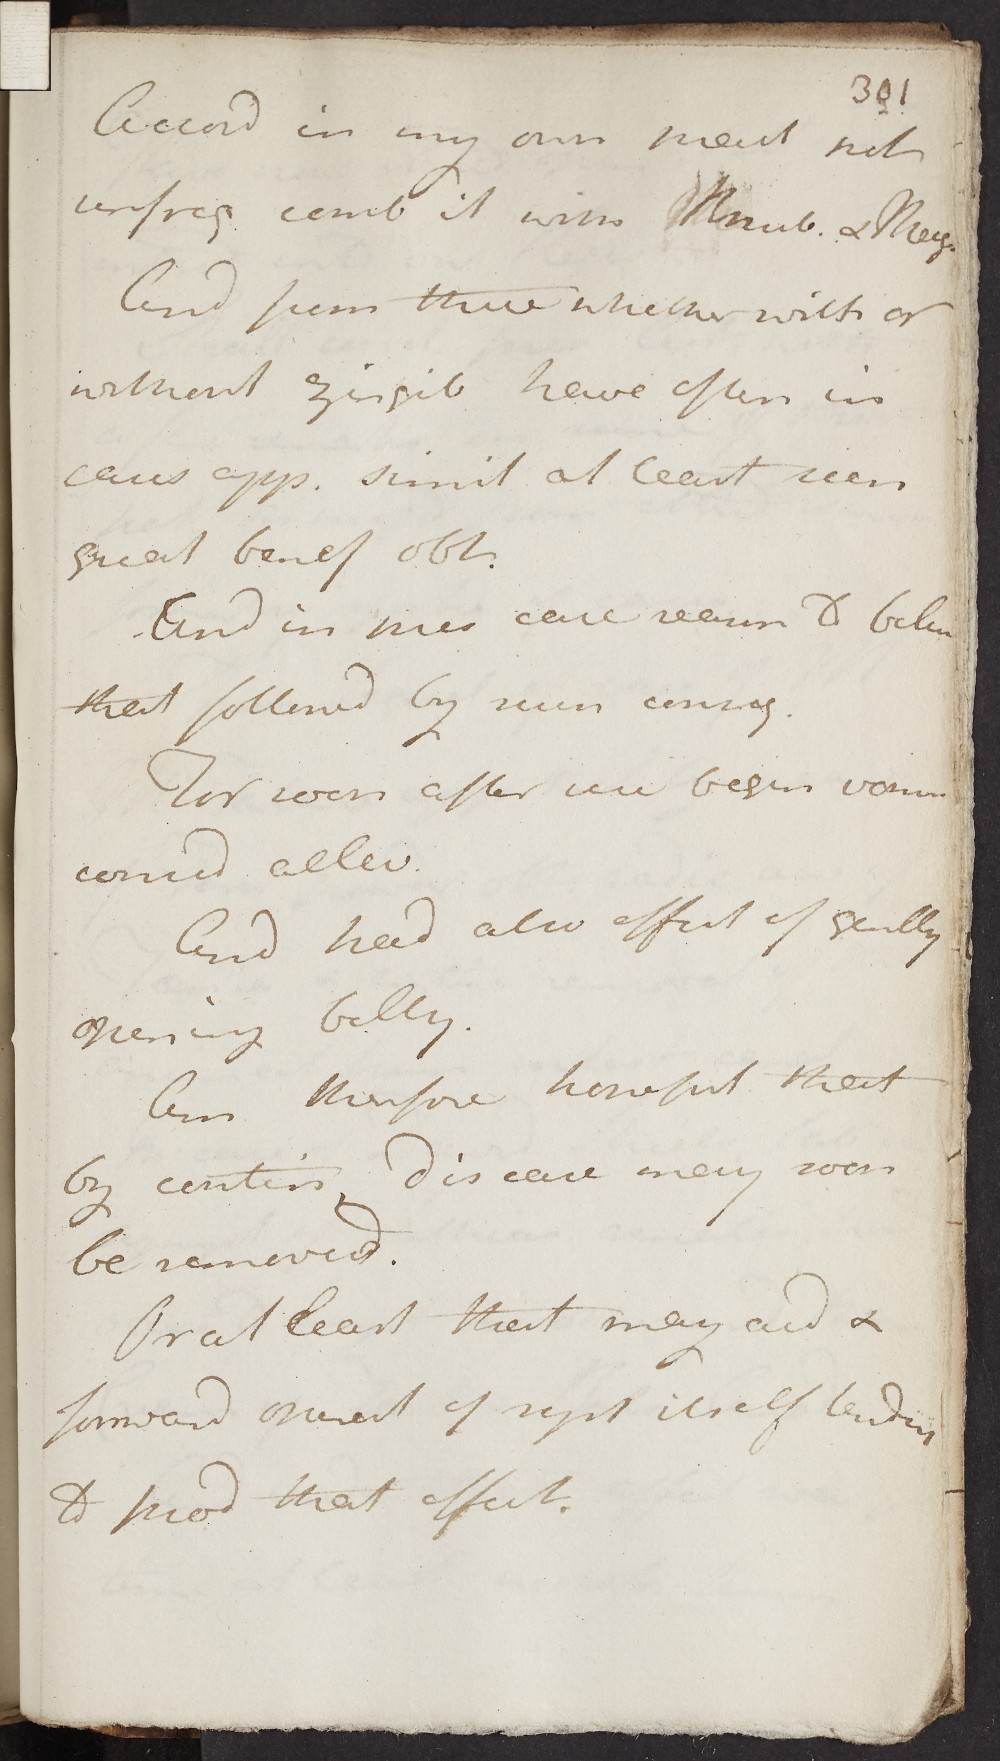 301
Accord in my own pract not
unfreq comb it with Rhub. & Mag.
And from these whether with or
without zingib have often in
cases app. simil at least seen
great benef obt.
And in pres case reason to belie
that followed by seem conseq.
For soon after use began vomit
consid allev.
And had also effect of gently
opening belly.
Am therefore hopeful that
by contin, disease may soon
be removed.
Or at least that may aid &
forward operat of rept itself tending
to prod that effect.